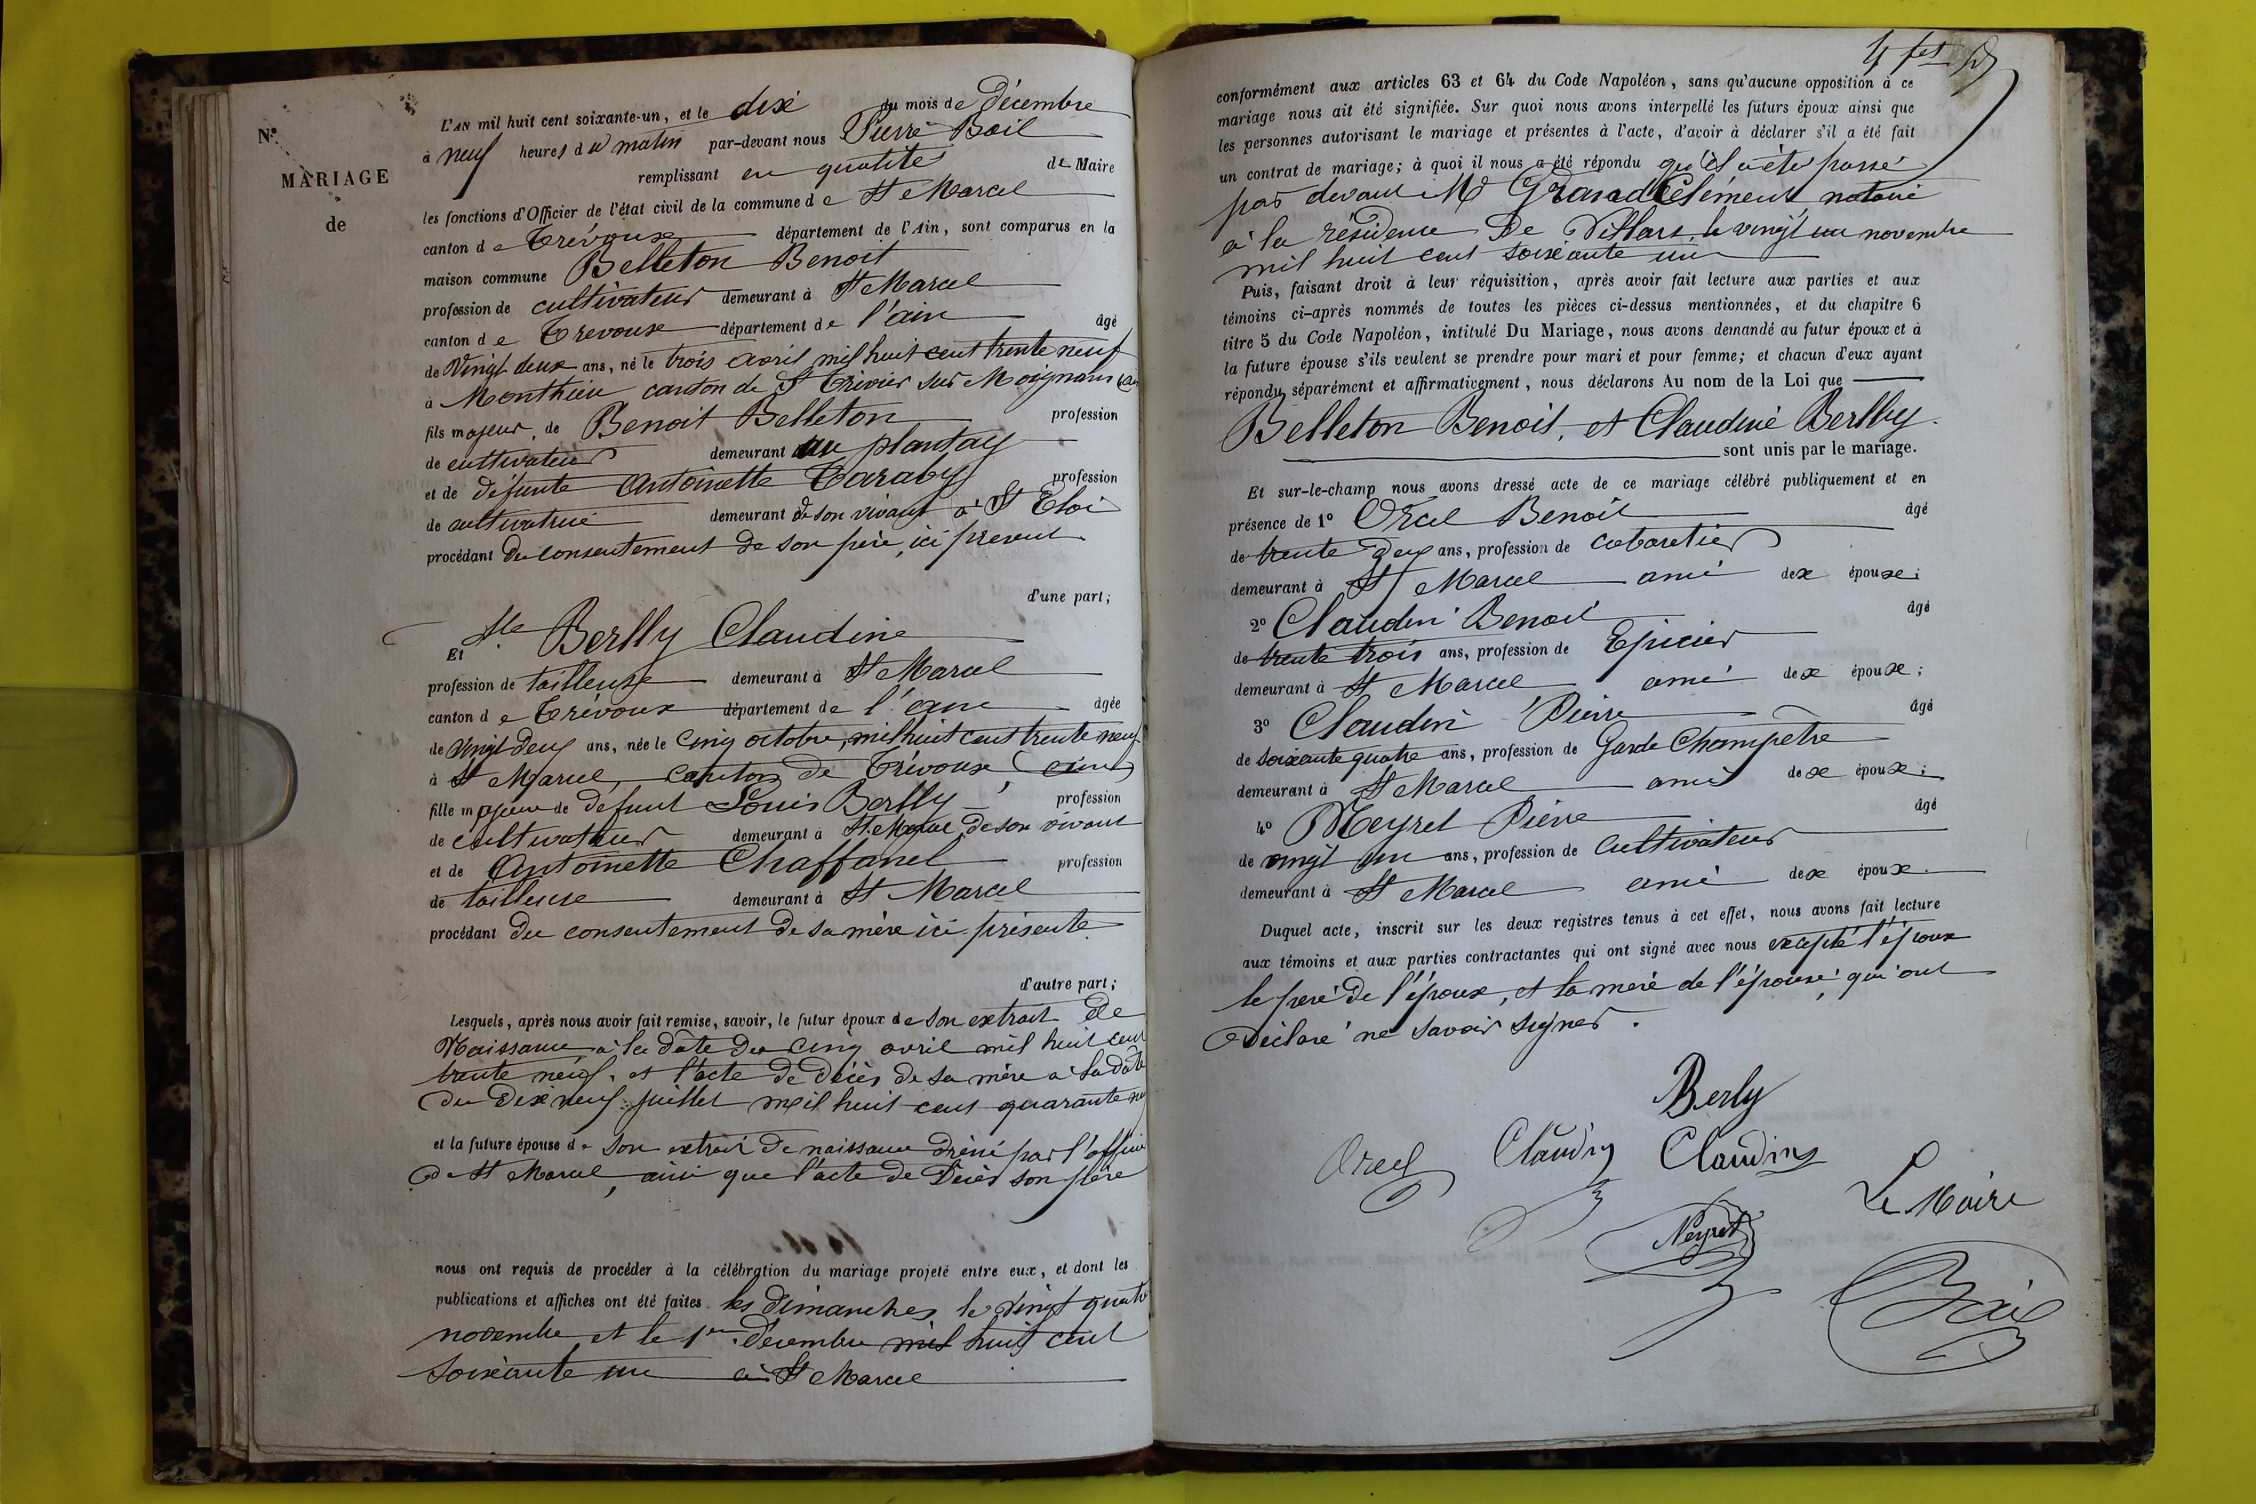 N°.
MARIAGE
de
L'AN mil huit cent soixante-un, et le dix du mois de Décembre
à neuf heures du matin par-devant nous Pierre Bail
remplissant en qualité de Maire
les fonctions d'Officier de l'état civil de la commune de St Marcel
canton de Trévoux département de l'Ain, sont comparus en la
maison commune Belleton Benoit
profession de cultivateur demeurant à St Marcel
canton de Trevoux département de l'ain âgé
de Vingt deux ans, né le trois avril mil huit cent trente neuf
à Monthieu canton de St Trivier sur Moignans
fils majeur, de Benoit Belleton profession
de cultivateur demeurant au plantay
et de défunte Antoinette Taraby profession
de cultivatrice demeurant de son vivant à St Eloi
procédant du consentement de son père, ici present
d'une part;
Et Mlle Berlly Claudine
profession de tailleuse demeurant à St Marcel
canton de Trévoux département de l'ain âgée
de vingt deux ans, née le cinq octobre, mil huit cent trente neuf
à St Marcel, canton de Trévoux (ain)
fille majeure de défunt Louis Berlly profession
de cultivateur demeurant à St Marcel de son vivant
et de Antoinette Chaffanel profession
de tailleuse demeurant à St Marcel
procédant du consentement de sa mère ici présente
d'autre part;
Lesquels, après nous avoir fait remise, savoir, le futur époux de son extrait de
Naissance à la date du cinq avril mil huit cent
trente neuf, et l'acte de décès de sa mère à la date
du dix neuf juillet mil huit cent quarante
et la future épouse de son extrait de naissance par l'officier
de St Marcel, ainsi que l'acte de Décès son père
nous ont requis de procéder à la célébration du mariage projeté entre eux, et dont les
publications et affiches ont été faites les dimanches, le vingt quatre
novembre et le 1er décembre mil huit cent
soixante un à St Marcel
conformément aux articles 63 et 64 du Code Napoléon, sans qu'aucune opposition à ce
mariage nous ait été signifiée. Sur quoi nous avons interpellé les futurs époux ainsi que
les personnes autorisant le mariage et présentes à l'acte, d'avoir à déclarer s'il a été fait
un contrat de mariage; à quoi il nous a été répondu qu'il a été passé
par devant Me GrandClément, notaire
à la résidence de Villars, le vingt un novembre
mil huit cent soixante un
Puis, faisant droit à leur réquisition, après avoir fait lecture aux parties et aux
témoins ci-après nommés de toutes les pièces ci-dessus mentionnées, et du chapitre 6
titre 5 du Code Napoléon, intitulé Du Mariage, nous avons demandé au futur époux et à
la future épouse s'ils veulent se prendre pour mari et pour femme; et chacun d'eux ayant
répondu séparément et affirmativement, nous déclarons Au nom de la Loi que
Belleton Benoit, et Claudine Berlly.
sont unis par le mariage.
Et sur-le-champ nous avons dressé acte de ce mariage célébré publiquement et en
présence de 1° Orcel Benoit âgé
de trente deux ans, profession de cabaretier
demeurant à St Marcel ami dex époux;
2° Claudin Benoit âgé
de trente trois ans, profession de Epicier
demeurant à St Marcel ami dex époux;
3° Claudin Pierre âgé
de soixante quatre ans, profession de Garde Champetre
demeurant à St Marcel ami dex époux;
4° Neyret Pierre âgé
de vingt un ans, profession de cultivateur
demeurant à St Marcel ami dex époux.
Duquel acte, inscrit sur les deux registres tenus à cet effet, nous avons fait lecture
aux témoins et aux parties contractantes qui ont signé avec nous excepté l'époux
le père de l'époux, et la mère de l'épouse, qui ont
déclaré ne savoir signer.
Berly
Orcel Claudin Claudine
Le Maire
Neyret
Bail